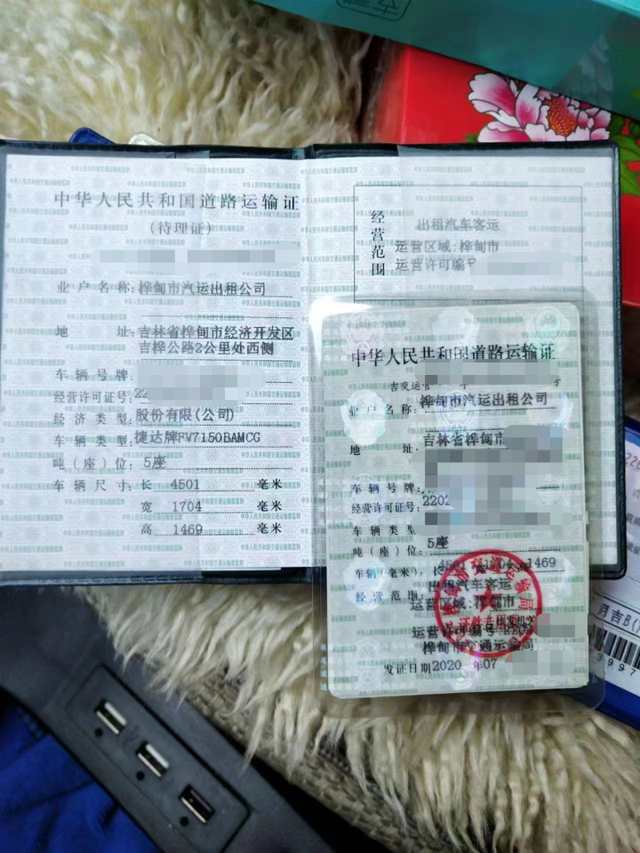 中华人民共和国道路运输证
(待理证)
业户名称:桦甸市汽运出租公司
地 址:吉林省桦甸市经济开发区
吉桦公路2公里处西侧
车辆号牌:
经营许可证号:22
经济类型:股份有限(公司)
车辆类型:捷达牌FV7150BAMCG
吨(座)位:5座
车辆尺寸:长 4501 毫米
宽 1704 毫米
高 1469 毫米
经营范围
出租汽车客运
运营区域:桦甸市
运营许可编号
中华人民共和国道路运输证
吉交运
号
业户名称:桦甸市汽运出租公司
地 址:吉林省桦甸市
车辆号牌:
经营许可证号:2202
车辆类型
吨(座)位:5座
车辆(毫米):1469
经营范围
出租汽车客运
运营区域:桦甸市
运营许可编号:220
桦甸市交通运输局
发证日期2020 年07
月吉B(